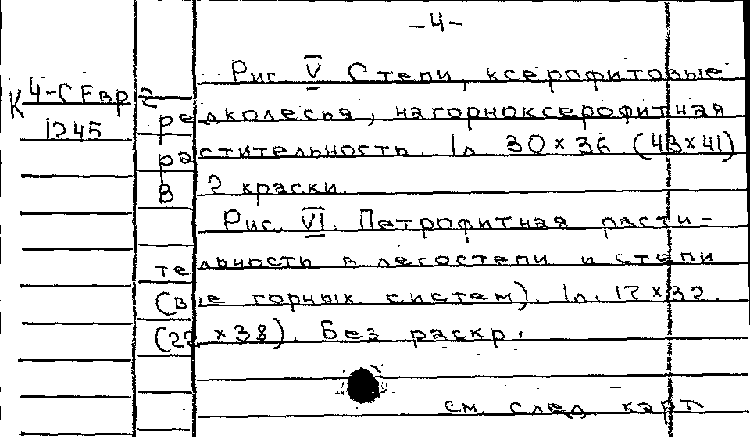 -4-
К 4-С Евр 2
1245
Рис. V Степи, ксерофитовые
редколесья, нагорноксерофитная
растительность. 1л. 30×36 (43×41)
в 2 краски.
Рис. VI. Петрофитная расти-
тельность в лесостепи и степи
(вне горных систем). 1л. 17×32.
(22×38). Без раскр.
см. след. карт